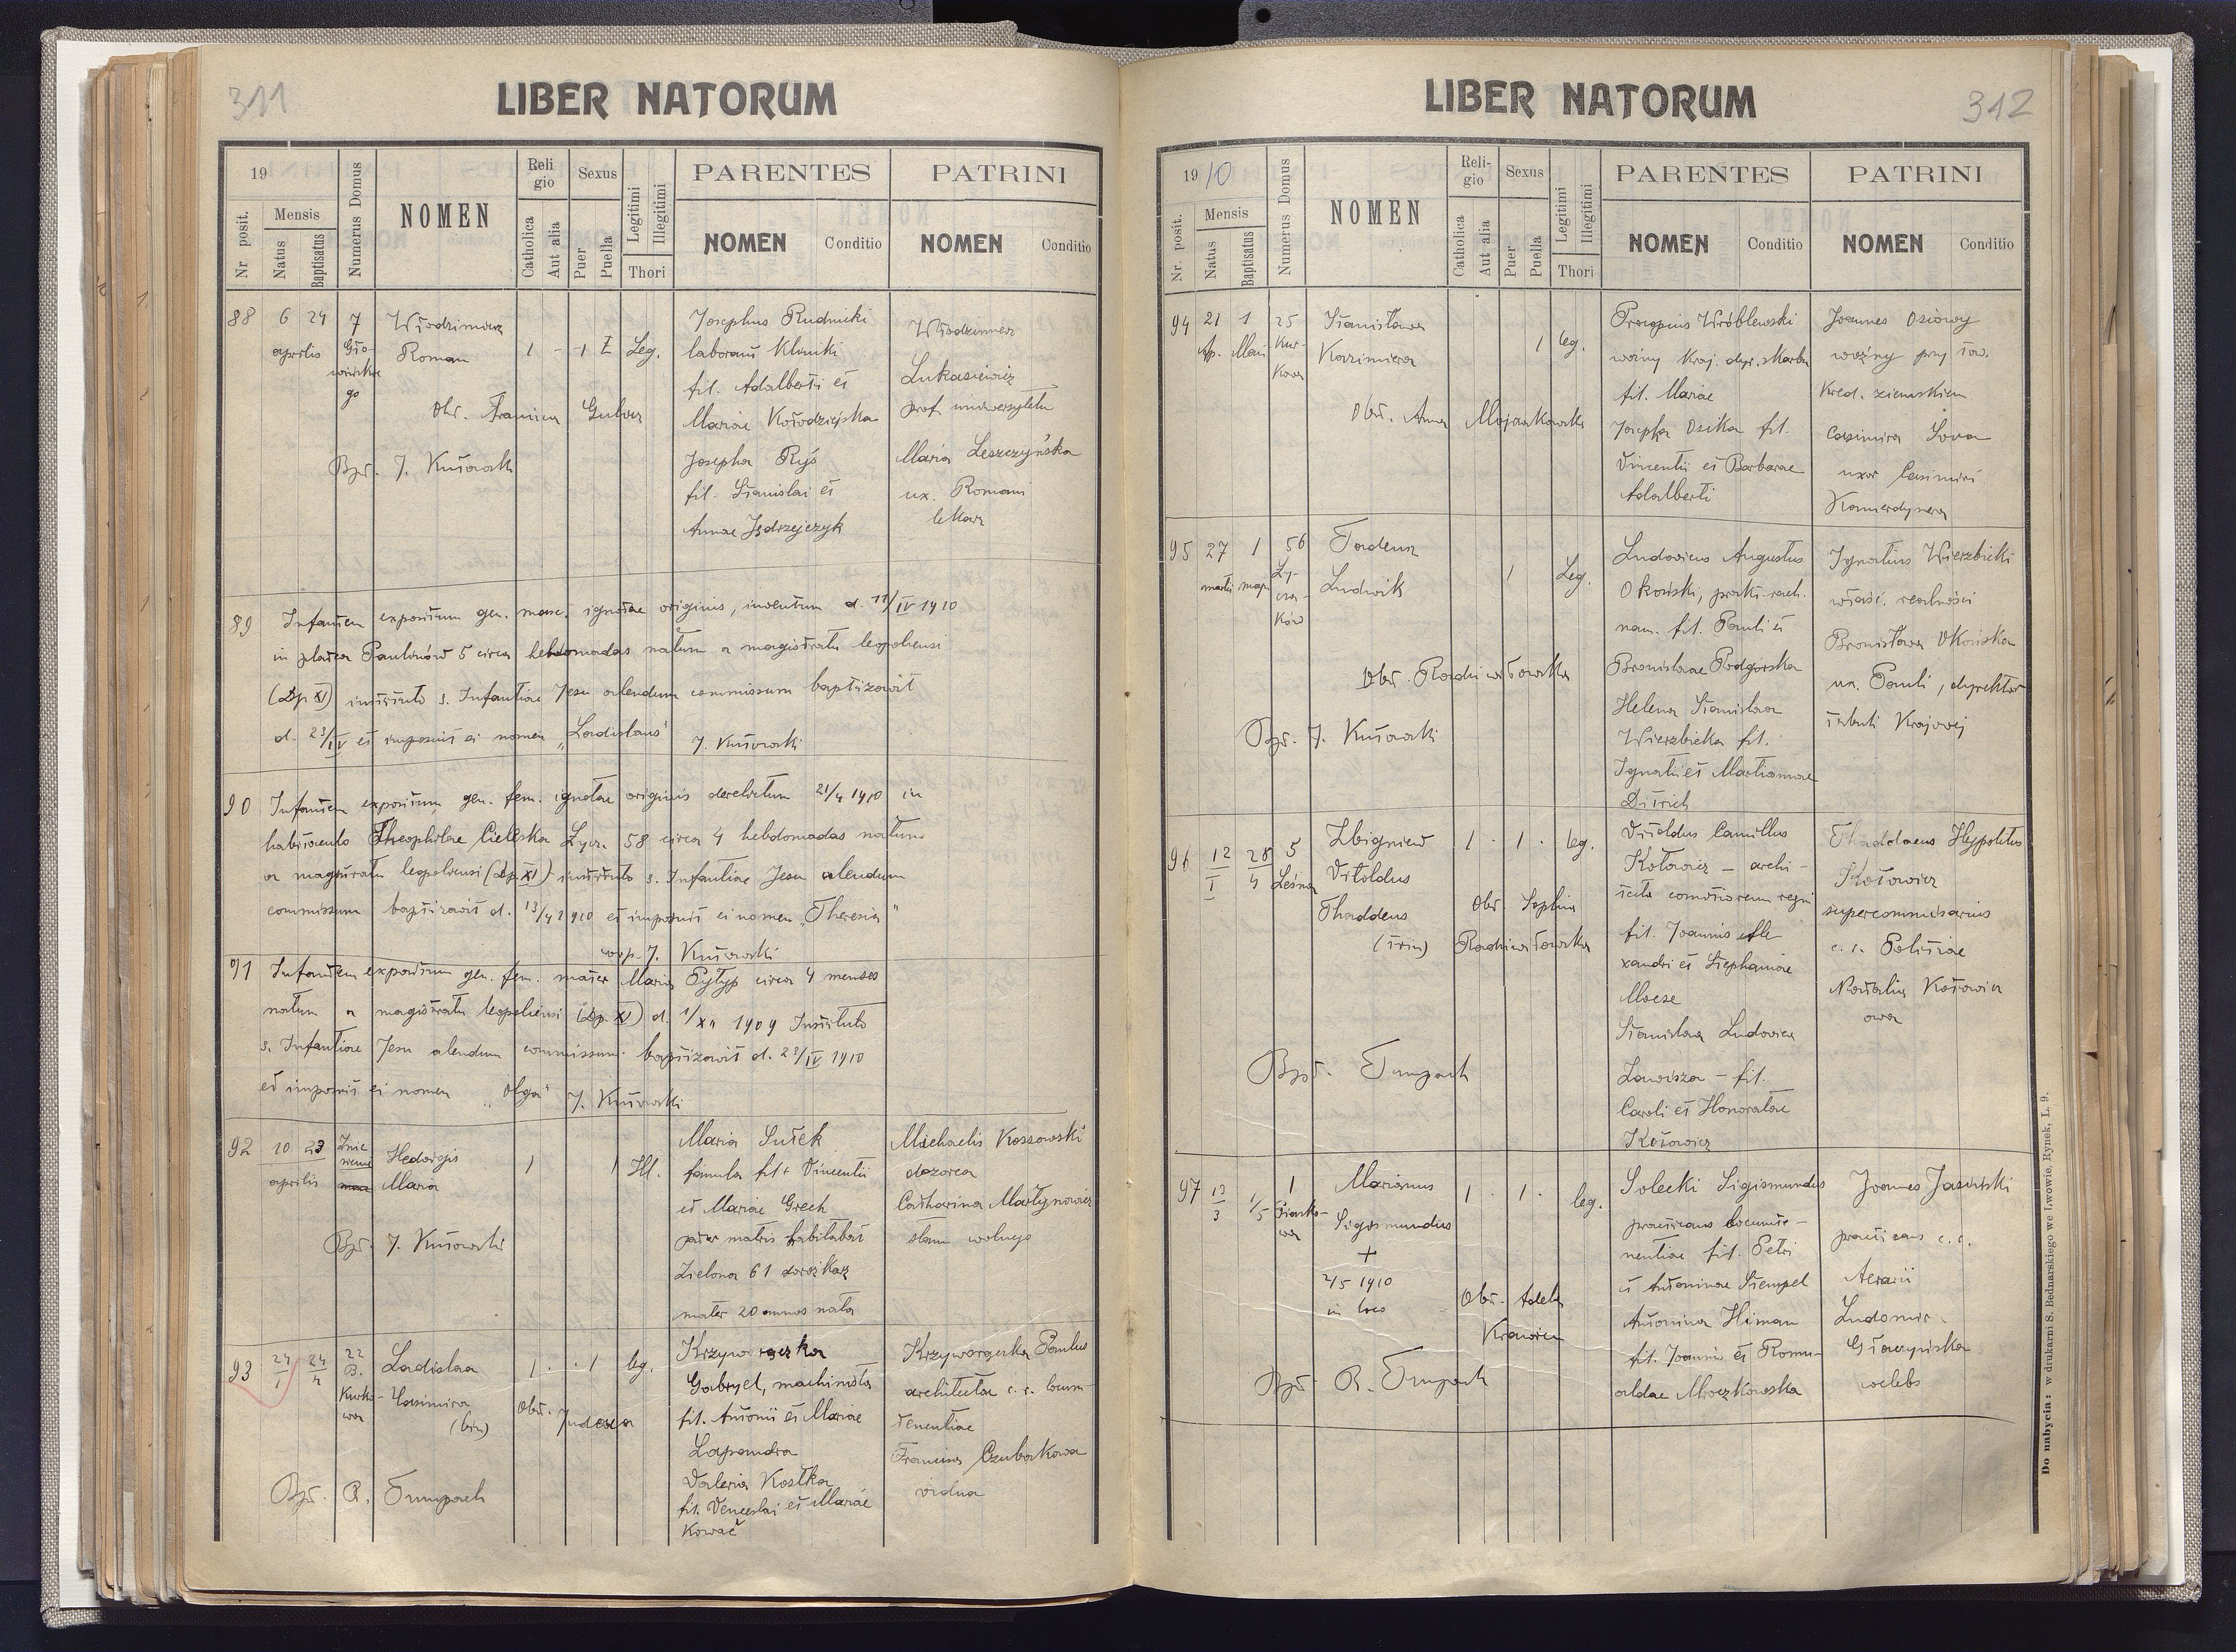 311
LIBER NATORUM
19
Nr posit.
Mensis
Natus
Baptisatus
Numerus Domus
NOMEN
Religio
Catholica
Aut alia
Sexus
Puer
Puella
Legitimi
Illegitimi
Thori
PARENTES
NOMEN Conditio
PATRINI
NOMEN Conditio
88 6 24 7
aprilis
Włodzimierz
Roman
1 - -1 Leg.
Obs. Franciea Gulva
Bpt. J. Kutowski
Josephus Rudnicki
laborans kliniki
fil. Adalberti et
Mariae Kołodziejska
Josepha Ryś
fil. Stanislai et
Annae Jędrzejczyk
Włodzimierz
Lukasiewicz
prof. uniwersytetu
Maria Leszczyńska
ux. Romani
lekarz
89 Infantem expositum gen. masc. ignotae originis, inventum d. 11/IV 1910
in platea Paulinów 5 circa hebdomadas natum a magistratu leopoliensi
(Dp XI) instituto s. Infantiae Jesu alendum commissum baptizavit
d. 23/IV et imposuit ei nomen „Ladislaus"
J. Kutowski
90 Infantem expositum gen. fem. ignotae originis derelictum 21/4 1910 in
habitaculo Theophilae Cieleska Lycz. 58 circa 4 hebdomadas natum
a magistratu leopoliensi (Dp XI) instituto s. Infantiae Jesu alendum
commissum baptizavit d. 23/4 1910 et imposuit ei nomen „Theresia"
J. Kutowski
91 Infantem expositum gen. fem. mater Maria Pytyp circa 4 menses
natum a magistratu leopoliensi (Dp. XI) d. 1/XII 1909 Instituto
s. Infantiae Jesu alendum commissum baptizavit d. 23/IV 1910
et imposuit ei nomen „Olga" J. Kutowski
92 10 23
aprilis
Hedvigis
Maria
1 1 Ill.
Bpt. J. Kutowski
Maria Sutek
famula fil. Vincentii
et Mariae Grech
pater matris habitabat
Zielona 61 dorożkarz
mater 20 annos nata
Michaelis Kossowski
dozorca
Catharina Martynowicz
stanu wolnego
93 24/1 24/4 22
B.
Kurkowa
Ladislaa
Casimira
(bin)
1 . . 1 leg.
Obs.
Bpt. R. Trumpach
Krzyworączka
Gabryel, machinista
fil. Antonii et Mariae
Lapandra
Valeria Kostka
fil. Venceslai et Mariae
Kowač
Krzyworączka Paulus
architecta c. r. locum-
tenentiae
Francisca Czubakowa
vidua
312
LIBER NATORUM
1910
Nr. posit.
Mensis
Natus
Baptisatus
Numerus Domus
NOMEN
Religio
Catholica
Aut alia
Sexus
Puer
Puella
Legitimi
Illegitimi
Thori
PARENTES
NOMEN Conditio
PATRINI
NOMEN Conditio
94 21 1 25
Ap. Maii Kur-
kowa
Stanisława
Kazimiera
1 leg.
Obst. Anna
Procopius Wróblewski
woźny kraj. dyr. skarbu
fil. Mariae
Josepha Osika fil.
Vincentii et Barbarae
Adalberti
Joannes Osiowy
woźny przy tow.
kred. ziemskiem
Casimira Sowa
uxor Casimiri
Kamerdynera
95 27 1 56
martii maji Ły-
cza-
ków
Tadeusz
Ludwik
1 Leg.
Obst. Radziwiłowska
Bpt. J. Kutowski
Ludovicus Augustus
Okoński, prakt. rach.
nam. fil. Pauli et
Bronislaae Podgorska
Helena Stanislaa
Wierzbicka fil.
Ignatii et Martiannae
Ditrich
Ignatius Wierzbicki
właśc. realności
Bronisława Okońska
ux. Pauli, dyrektor
tabuli Krajowej
96 12/I 28/4 5
Leśna
Zbigniew
Vitoldus
Thaddeus
(trin)
1 . 1 . leg.
Obst. Sophia
Radziwiłowska
Bpt. Trumpach
Vitoldus Camillus
Kotowicz - archi-
tecta
fil. Joannis Ale
xandri et Stephaniae
Moese
Stanislaa Ludovica
Zawisza - fil.
Caroli et Honoratae
Kotowicz
Thaddaeus Hyppolitus
Kotowicz
supercommissarius
c. r. Politiae
Natalia Kotowicz
owa
97 13/3 1/5 1
Piasko-
wa
Marianus
Sigismundus
+
2/5 1910
in loco
1 . 1 . leg.
Obst. Adela
Krawiec
Bpt. R. Trumpach
Solecki Sigismundus
practicans locumte-
nentiae fil. Petri
et Antoninae Stempel
Antonina Himan
fil. Joannis et Romu-
aldae Mroczkowska
Joannes Jasiński
practicans c. r.
Aerarii
Ludomira
Głaczyńska
caelebs
Do nabycia: w drukarni S. Bednarskiego we Lwowie, Rynek, L. 9.